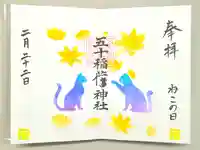 奉拝
ねこの日
五十稲荷神社
二月二十二日